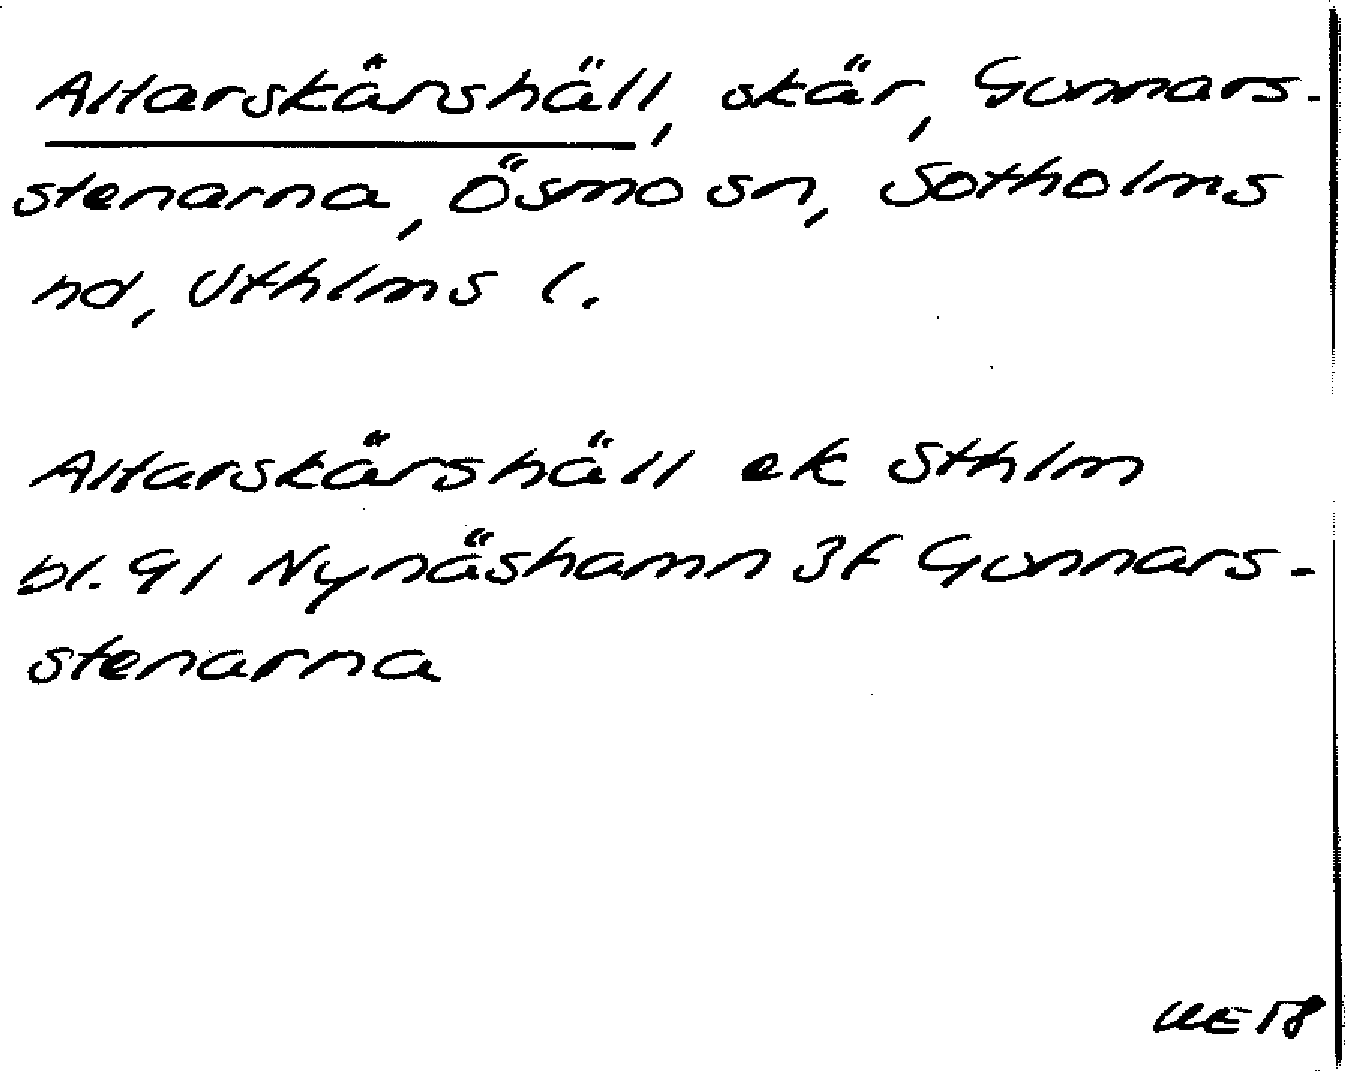 Altarskärshäll, skär, Gunnars-
stenarna, Ösmo sn, Sotholms
hd, Sthlms l.

Altarskärshäll ek Sthlm
bl. 91 Nynäshamn 3f Gunnars-
stenarna